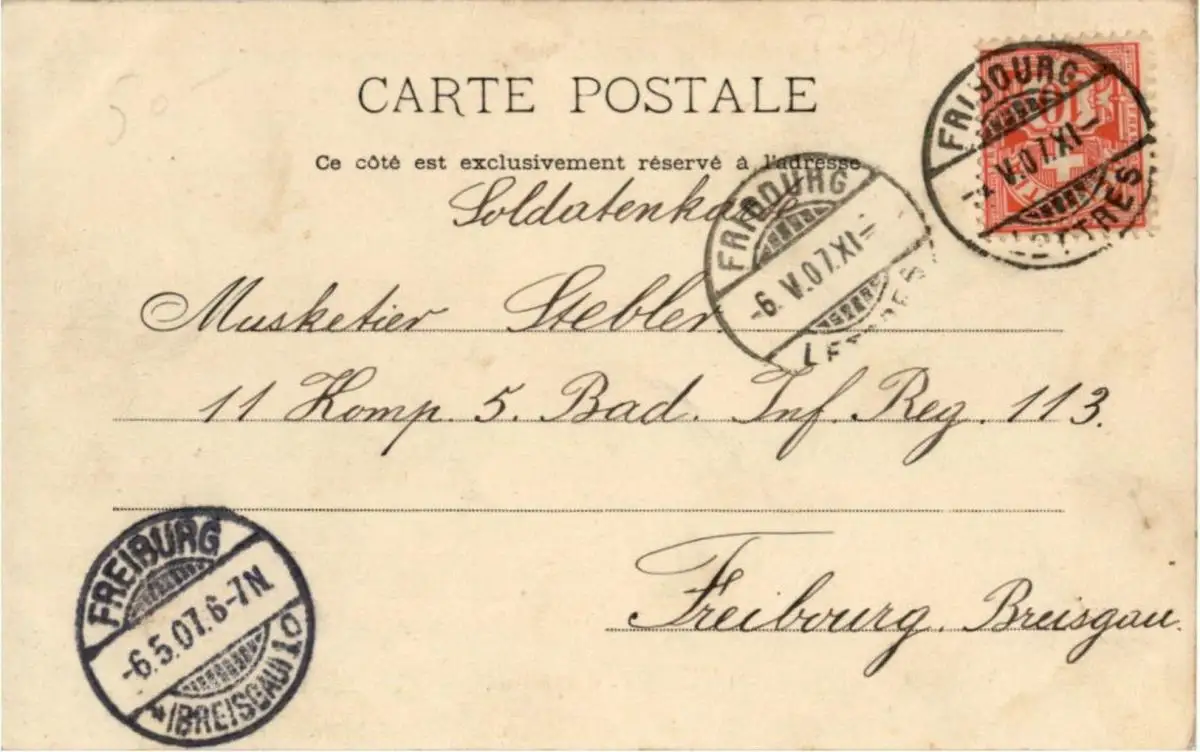 CARTE POSTALE
Ce côté est exclusivement réservé à l'adresse
Soldatenkarte
Musketier Stebler
11 Komp. 5. Bad. Inf. Reg. 113.
Freibourg. Breisgau.
FRIBOURG
V.07.XI-
LETTRES
10
FRIBOURG
-6. V.07.XI-
LETTRES
FREIBURG
-6.5.07.6-7N.
*(BREISGAU) 10